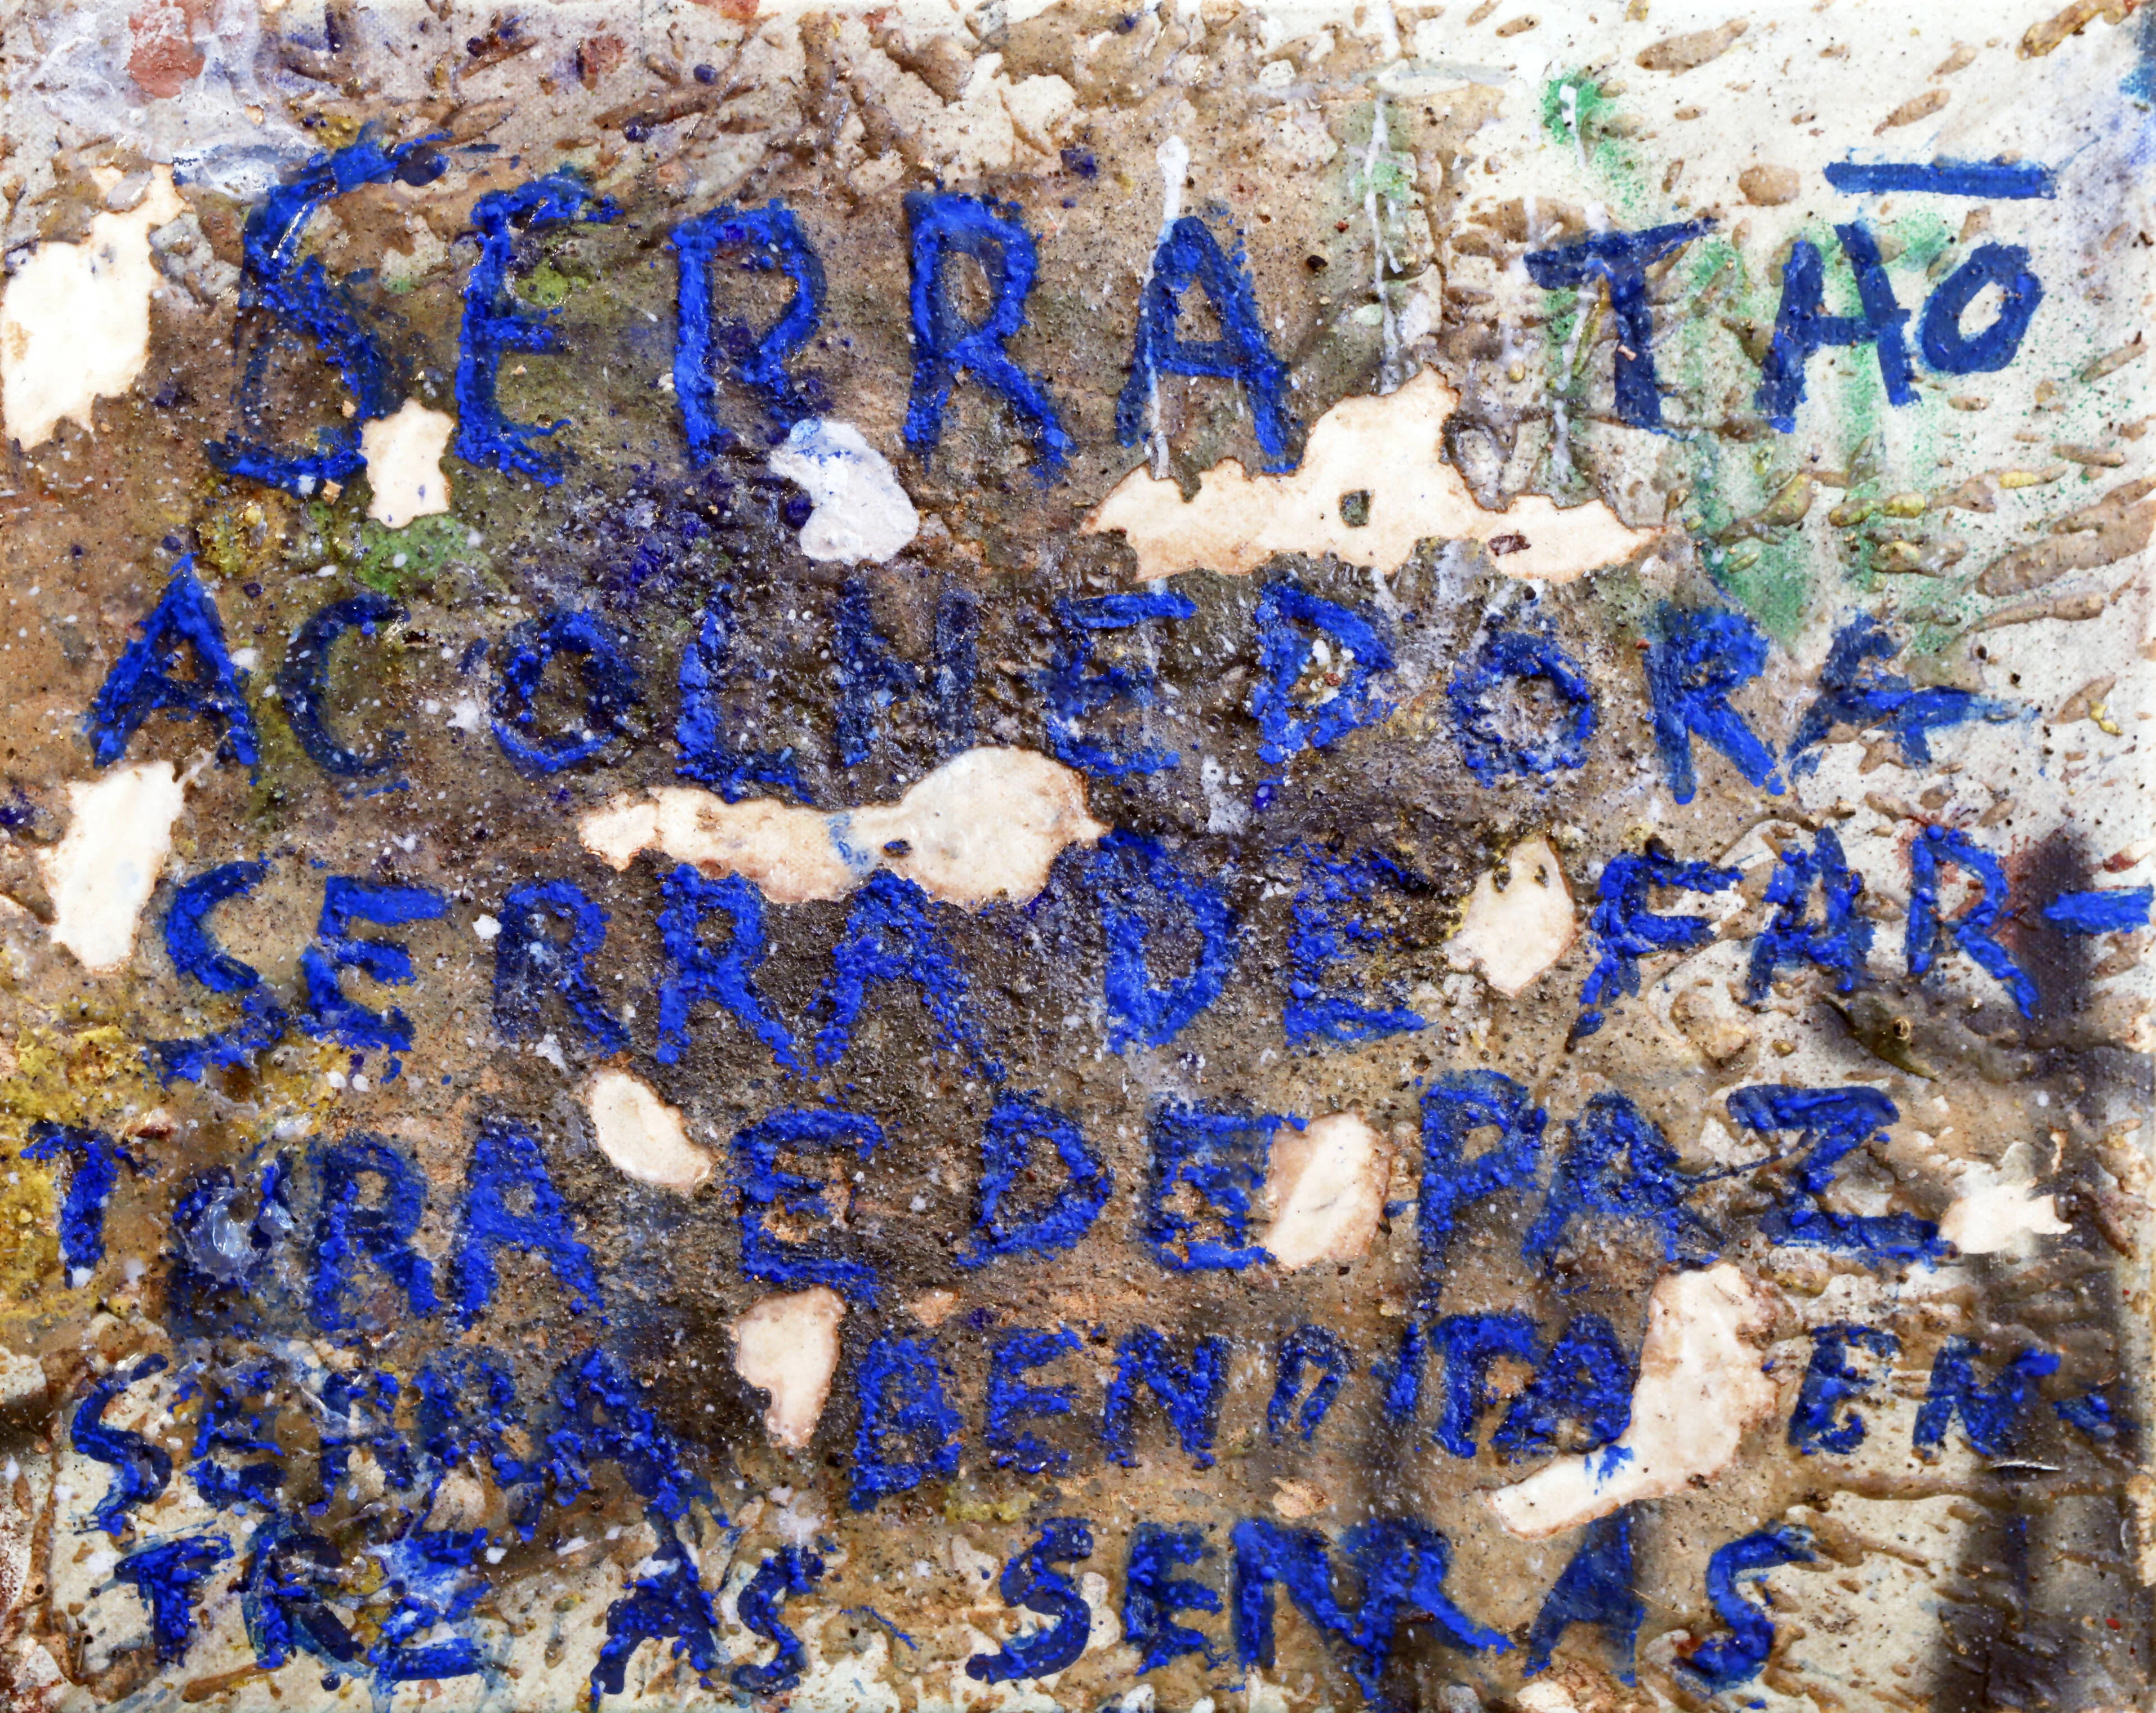 SERRA TAO
ACOLHEDORA
SERRA DE FAR-
TURA E DE PAZ
SERRA BENDITA EN-
TRE AS SERRAS